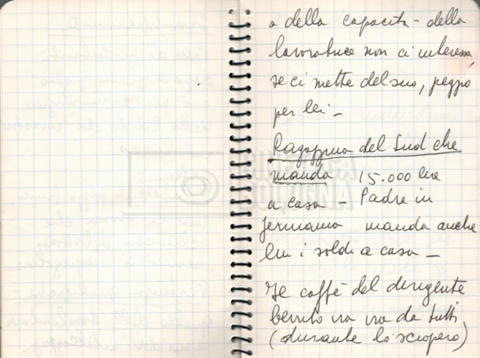 o della capacità - della
lavoratrice non ci interessa,
se ci mette del suo, peggio
per lei -
Ragazzina del Sud che
manda 15.000 lire
a casa - Padre in
Germania manda anche
lui i soldi a casa -
Il caffè del dirigente
bevuto via via da tutti
(durante lo sciopero)